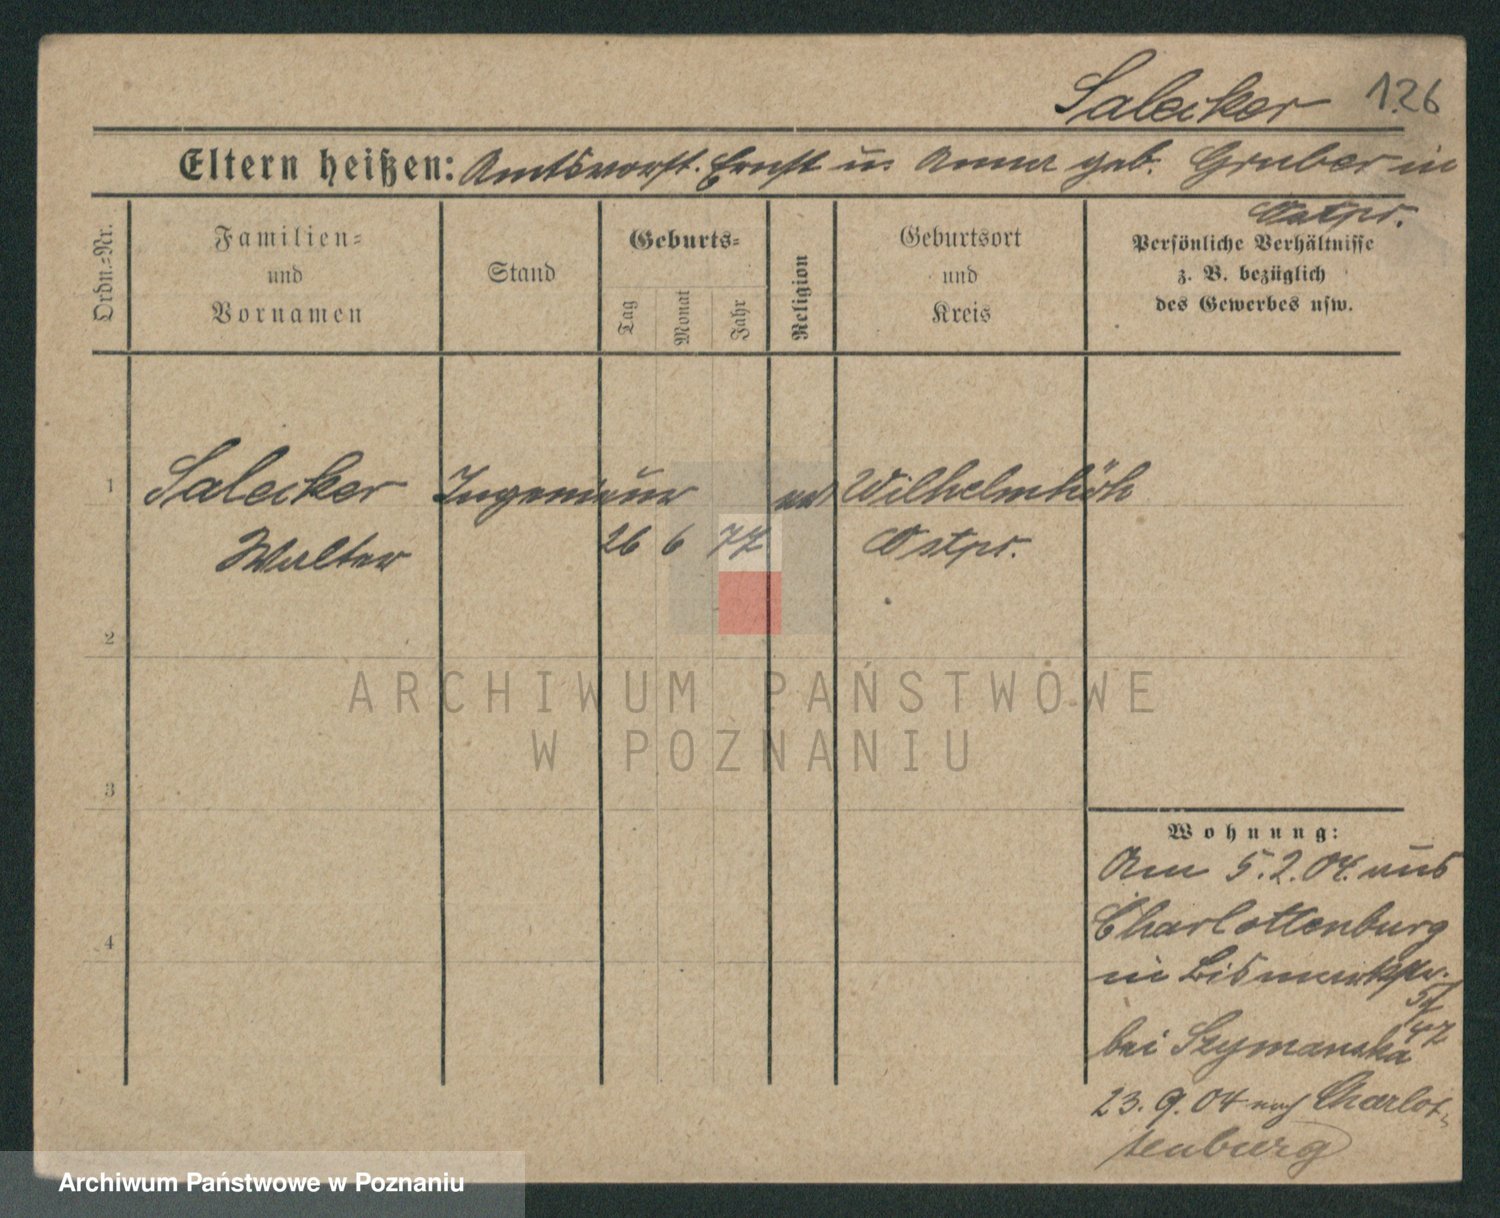 Salecker 126
Eltern heißen: Amtsvorst. Ernst u. Anna geb. Gruber in
Ostpr.
Ordn.-Nr.
Familien-
und
Vornamen
Stand
Geburts-
Tag
Monat
Jahr
Religion
Geburtsort
und
Kreis
Persönliche Verhältnisse
z. B. bezüglich
des Gewerbes usw.
1 Salecker Ingenieur ev Wilhelmshöh
Walter 26 6 77 Ostpr.
2
3
4
Wohnung:
Am 5.2.04. aus
Charlottenburg
in Bismarkstr.
bei Szymanska
23.9.04 nach Charlot-
tenburg
ARCHIWUM PAŃSTWOWE
W POZNANIU
Archiwum Państwowe w Poznaniu